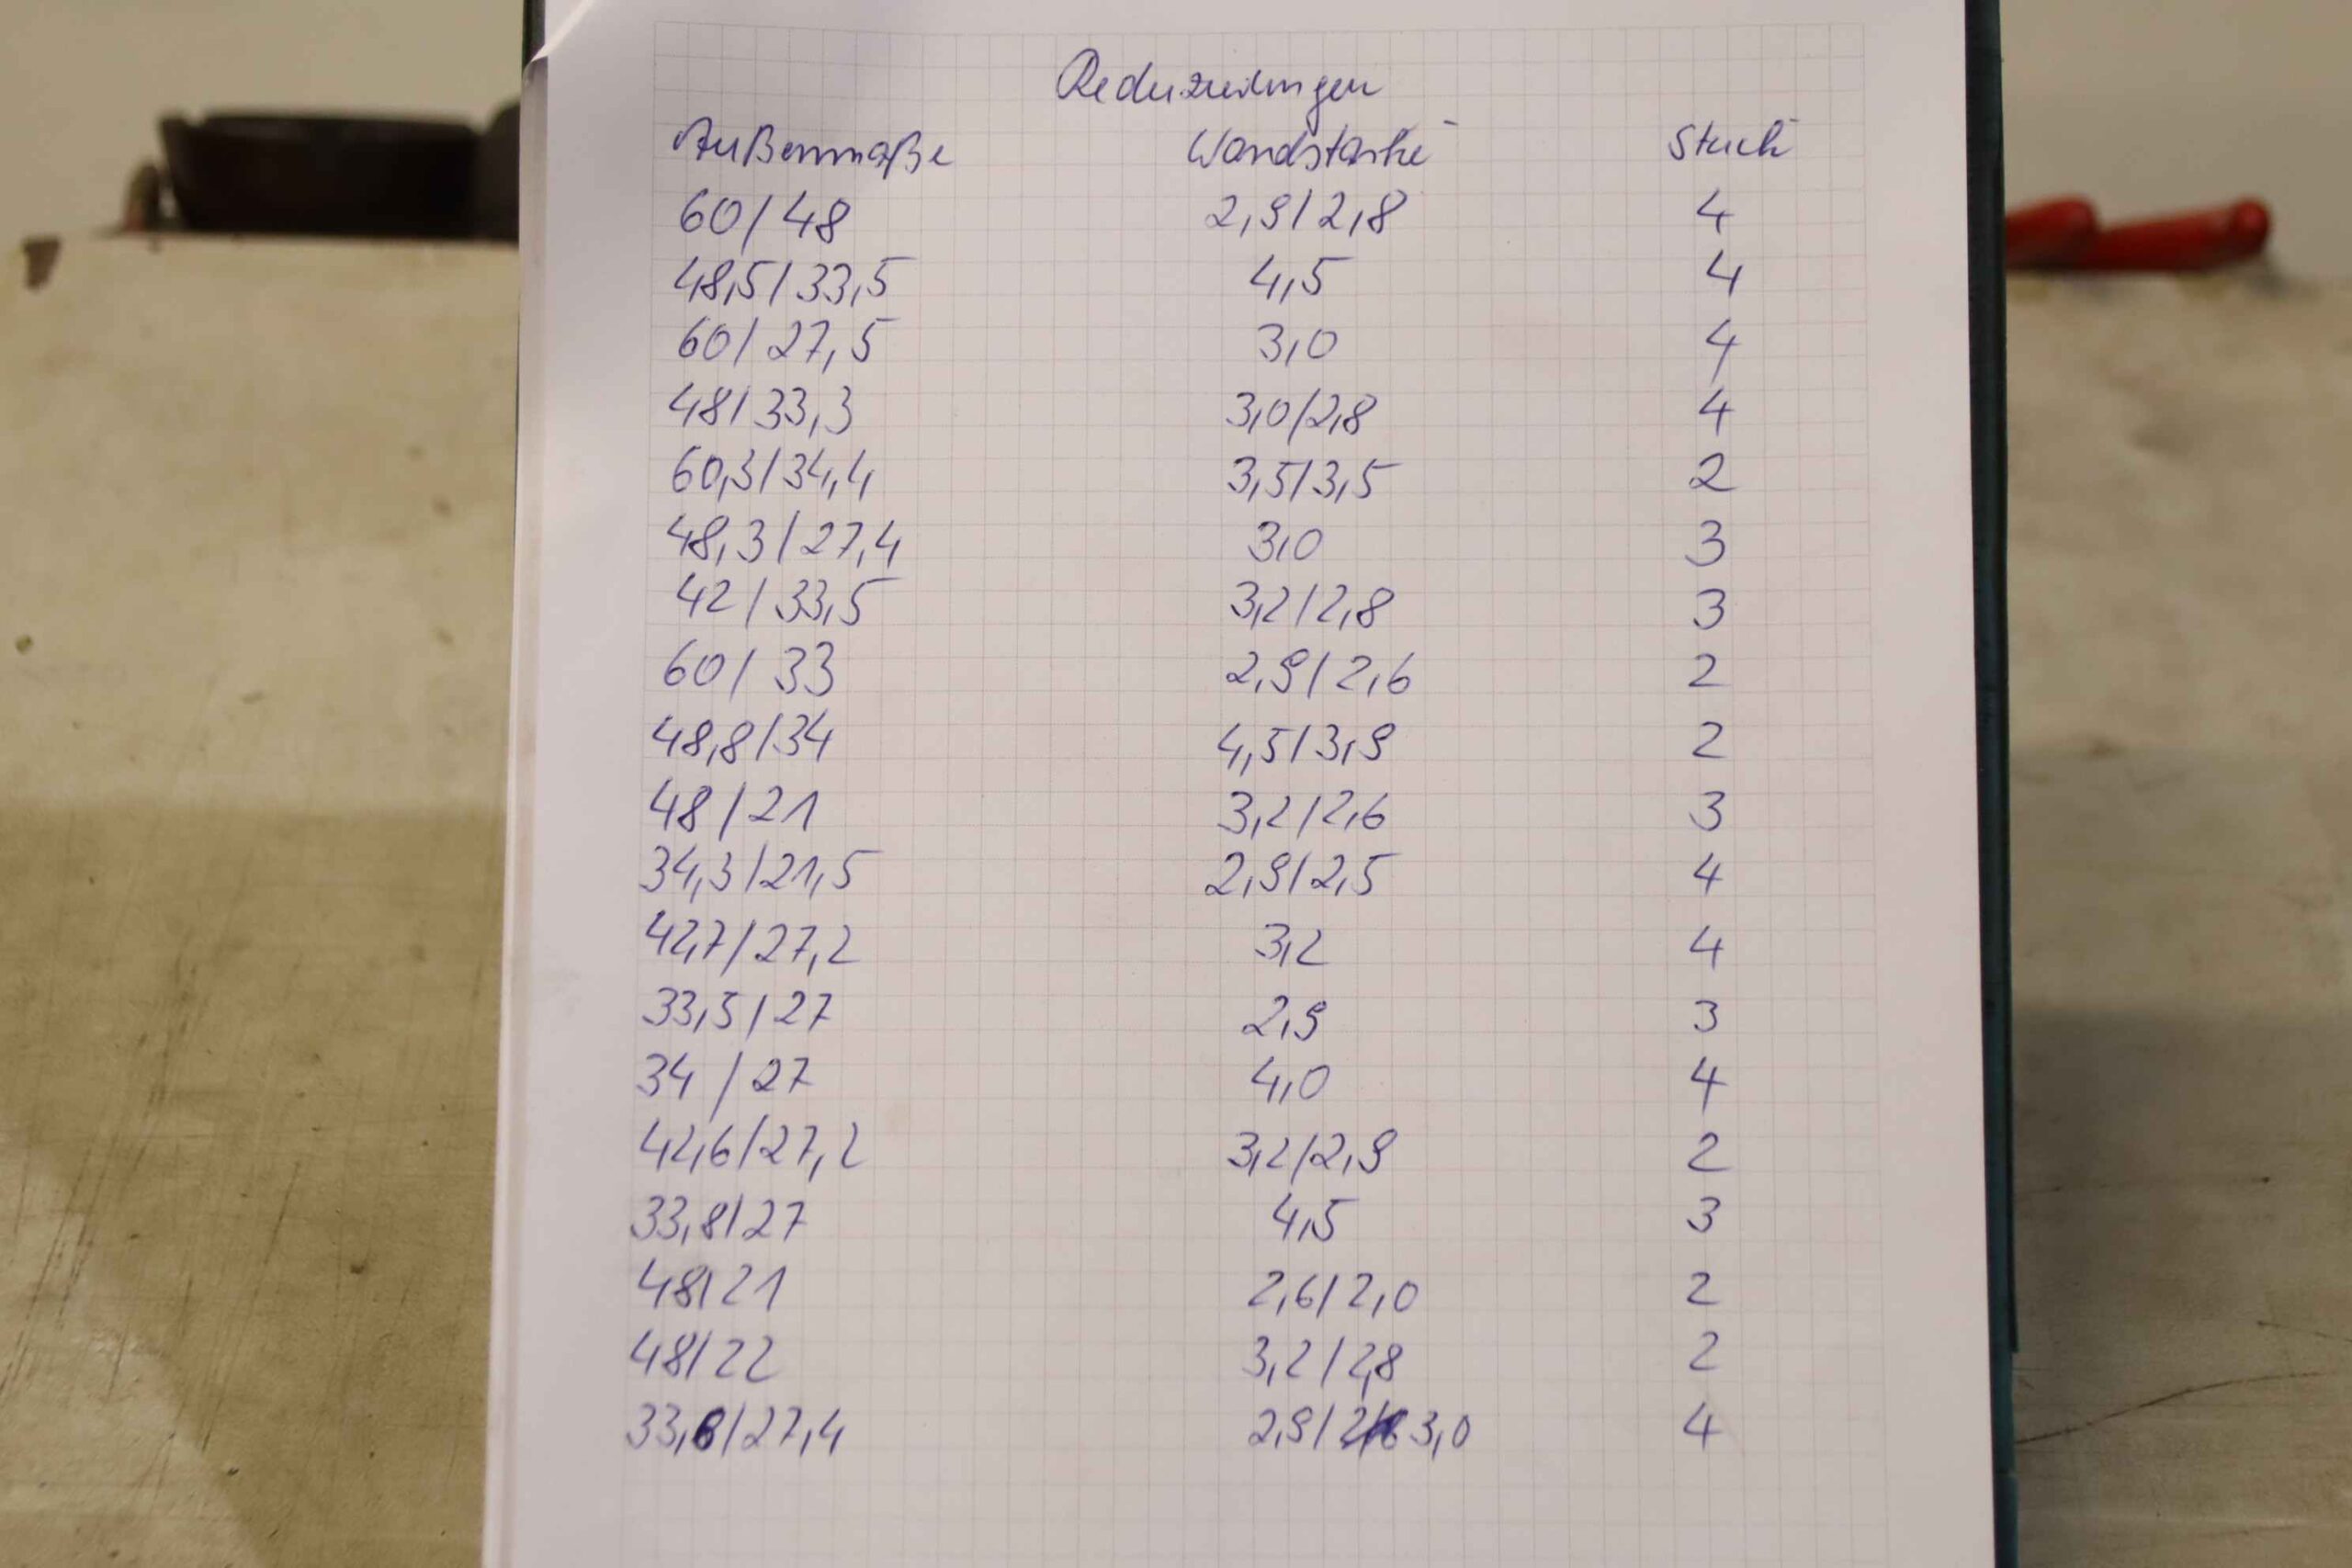 Reduzierungen
Außenmaße Wandstärke Stück
60/48 2,9/2,8 4
48,5/33,5 4,5 4
60/27,5 3,0 4
48/33,3 3,0/2,8 4
60,3/34,4 3,5/3,5 2
48,3/27,4 3,0 3
42/33,5 3,2/2,8 3
60/33 2,9/2,6 2
48,8/34 4,5/3,9 2
48/21 3,2/2,6 3
34,3/21,5 2,9/2,5 4
42,7/27,2 3,2 4
33,5/27 2,9 3
34/27 4,0 4
42,6/27,2 3,2/2,9 2
33,8/27 4,5 3
48/21 2,6/2,0 2
48/22 3,2/2,8 2
33,6/27,4 2,9/3,0 4